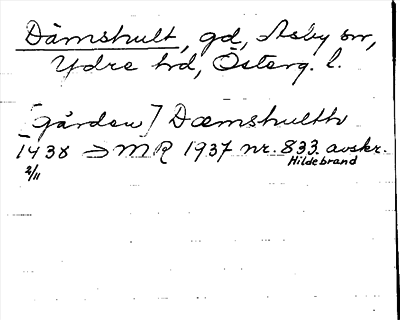 Dämshult, gd, Asby sn,
Ydre hd, Österg. l.
[gården] Dæmshulth
1438 MR 1937 nr. 833. avskr.
2/11 Hildebrand